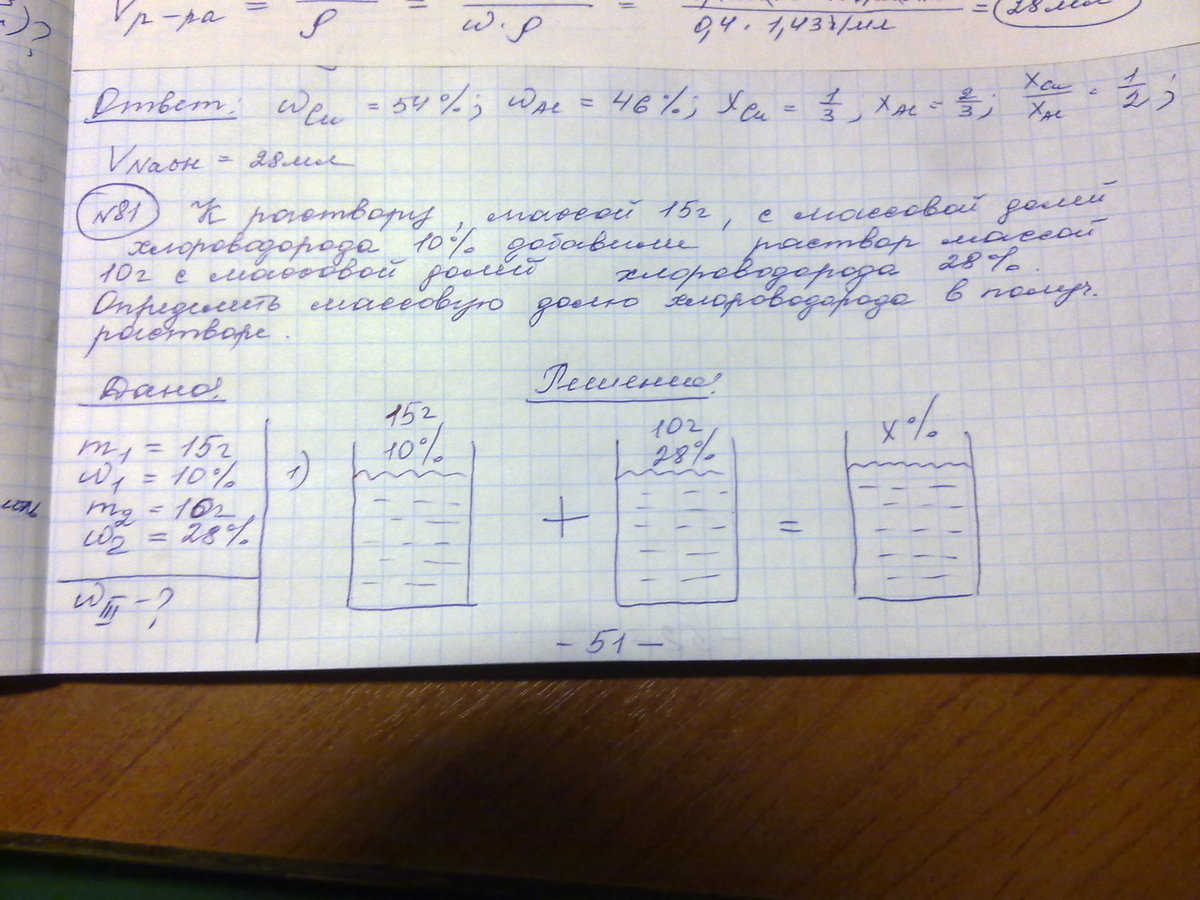 V р-ра = /ρ = /ω·ρ = /0,4 · 1,43г/мл = 28мл
Ответ: ωCu = 54%; ωAl = 46%; XCu = 1/3, XAl = 2/3; XCu/XAl = 1/2;
VNaOH = 28мл
N81 К раствору, массой 15г, с массовой долей
хлороводорода 10% добавили раствор массой
10г с массовой долей хлороводорода 28%.
Определить массовую долю хлороводорода в получ.
растворе.
Дано: Решение:
m1 = 15г
ω1 = 10%
m2 = 10г
ω2 = 28%
ωIII - ?
1) 15г 10% + 10г 28% = X%
- 51 -